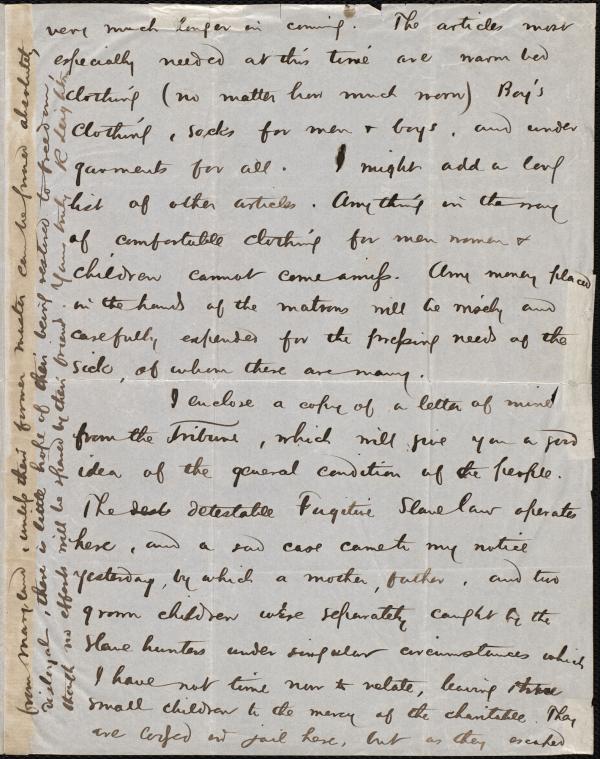 very much longer in coming. The articles most
especially needed at this time are warm bed
clothing (no matter how much worn) Boy's
clothing, socks for men & boys, and under
garments for all. I might add a long
list of other articles. Anything in the way
of comfortable clothing for men women &
children cannot come amiss. Any money placed
in the hands of the matrons will be wisely and
carefully expended for the pressing needs of the
sick, of whom there are many.
I enclose a copy of a letter of mine
from the Tribune, which will give you a good
idea of the general condition of the people.
The detestable Fugitive Slave law operates
here, and a sad case came to my notice
yesterday, by which a mother, father, and two
grown children were separately caught by the
slave hunters under singular circumstances which
I have not time now to relate, leaving three
small children to the mercy of the charitable. They
are lodged in jail here, but as they escaped
from Maryland, unless their former master can be proved absolutely
disloyal, there is little hope of their being restored to freedom,
though no efforts will be spared by their friend. Yours truly